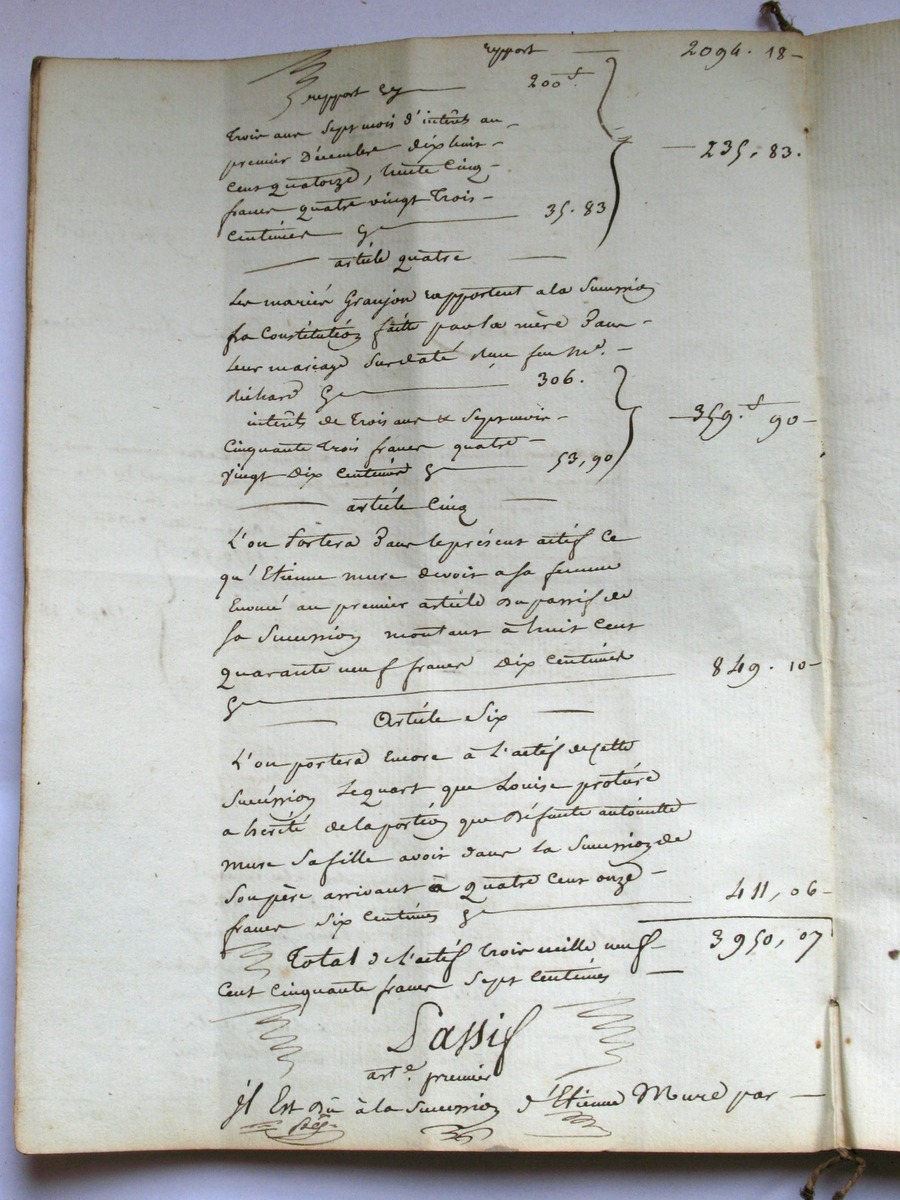 rapport — 2094. 18 —
rapport cy — 200#
trois ans sept mois d'intérêts au —
premier Décembre dix huit —
cent quatorze, trente cinq —
francs quatre vingt trois — 235, 83.
centimes cy — 35. 83
— article quatre —
Les mariés Granjon rapportent a la Succession
la Constitution faite par la mère dans —
leur mariage Sus daté reçu feu Me. —
Richard cy — 306.
intérêts de trois ans & Sept mois —
Cinquante trois francs quatre — 359.# 90 —
vingt dix Centimes cy — 53, 90
— article Cinq —
L'on Portera dans le présent actif Ce
qu'Etienne mure devoit a sa femme
Enoncé au premier article du passif de
sa Succession montant à huit Cent
quarante neuf francs dix Centimes
cy — 849. 10 —
— Article Six —
L'on portera Encore à L'actif de cette
Succession Le quart que Louise protière
a hérité de la portion que défunte antoinette
mure Sa fille avoit dans la Succession de
Son père arrivant à quatre Cent onze —
francs Six Centimes cy — 411, 06 —
Total de l'actif trois mille neuf — 3950, 07
Cent Cinquante francs Sept Centimes —
Passif
arte. premier
il Est dû à la Succession d'Etienne Mure par —